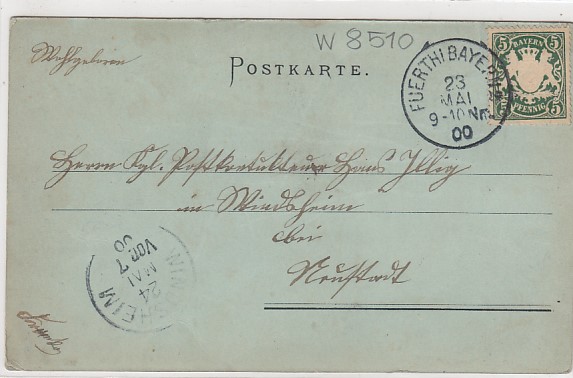 W 8510
Wohlgeboren
POSTKARTE.
FUERTH I BAYERN
23
MAI
9-10 Nm
00
5 BAYERN 5
5 PFENNIG 5
Herrn Kgl. Postkondukteur Hans Illig
in Windsheim
bei
Neustadt
WINDSHEIM
24
MAI
Vor 7
00